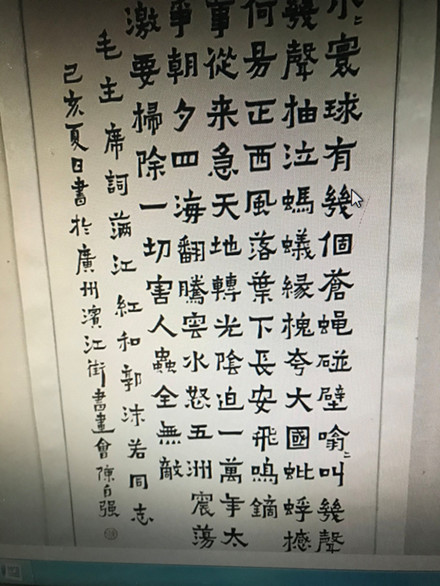 小〻寰球有幾個蒼蠅碰壁嗡〻叫幾聲
幾聲抽泣螞蟻緣槐夸大國蚍蜉撼
何易正西風落葉下長安飛鳴鏑
事從来急天地轉光陰迫一萬年太
爭朝夕四海翻騰雲水怒五洲震蕩
激要掃除一切害人蟲全無敵
毛主席詞滿江紅和郭沫若同志
己亥夏日書於廣州濱江街書畫會陳自强